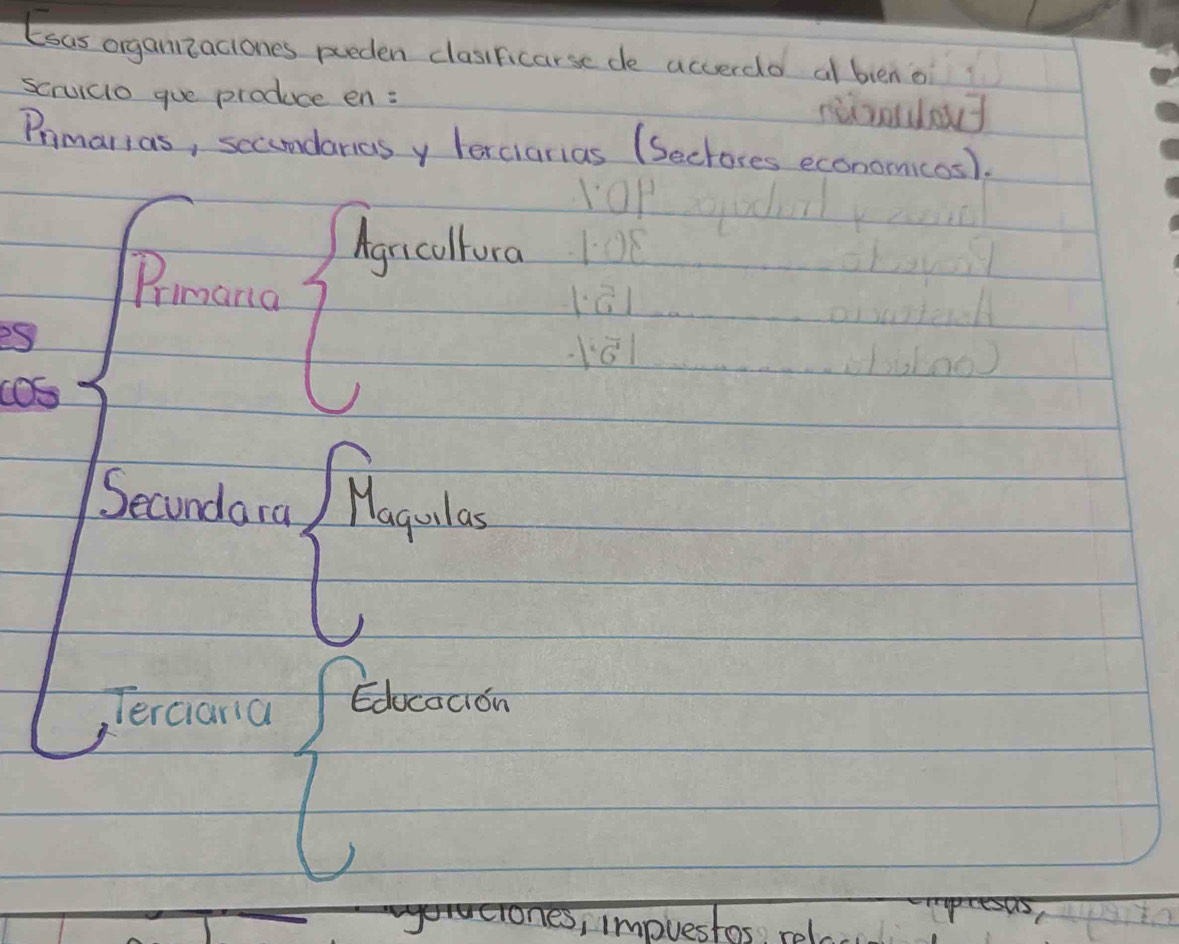 Esas organizaciones pueden clasificarse de acuerdo al bien o
servicio que produce en:
Primarias, secundarias y terciarias (Sectores economicos).
Primaria
Agricultura
es
cos
Secundara
Maquilas
Terciaria
Educación
impuestos